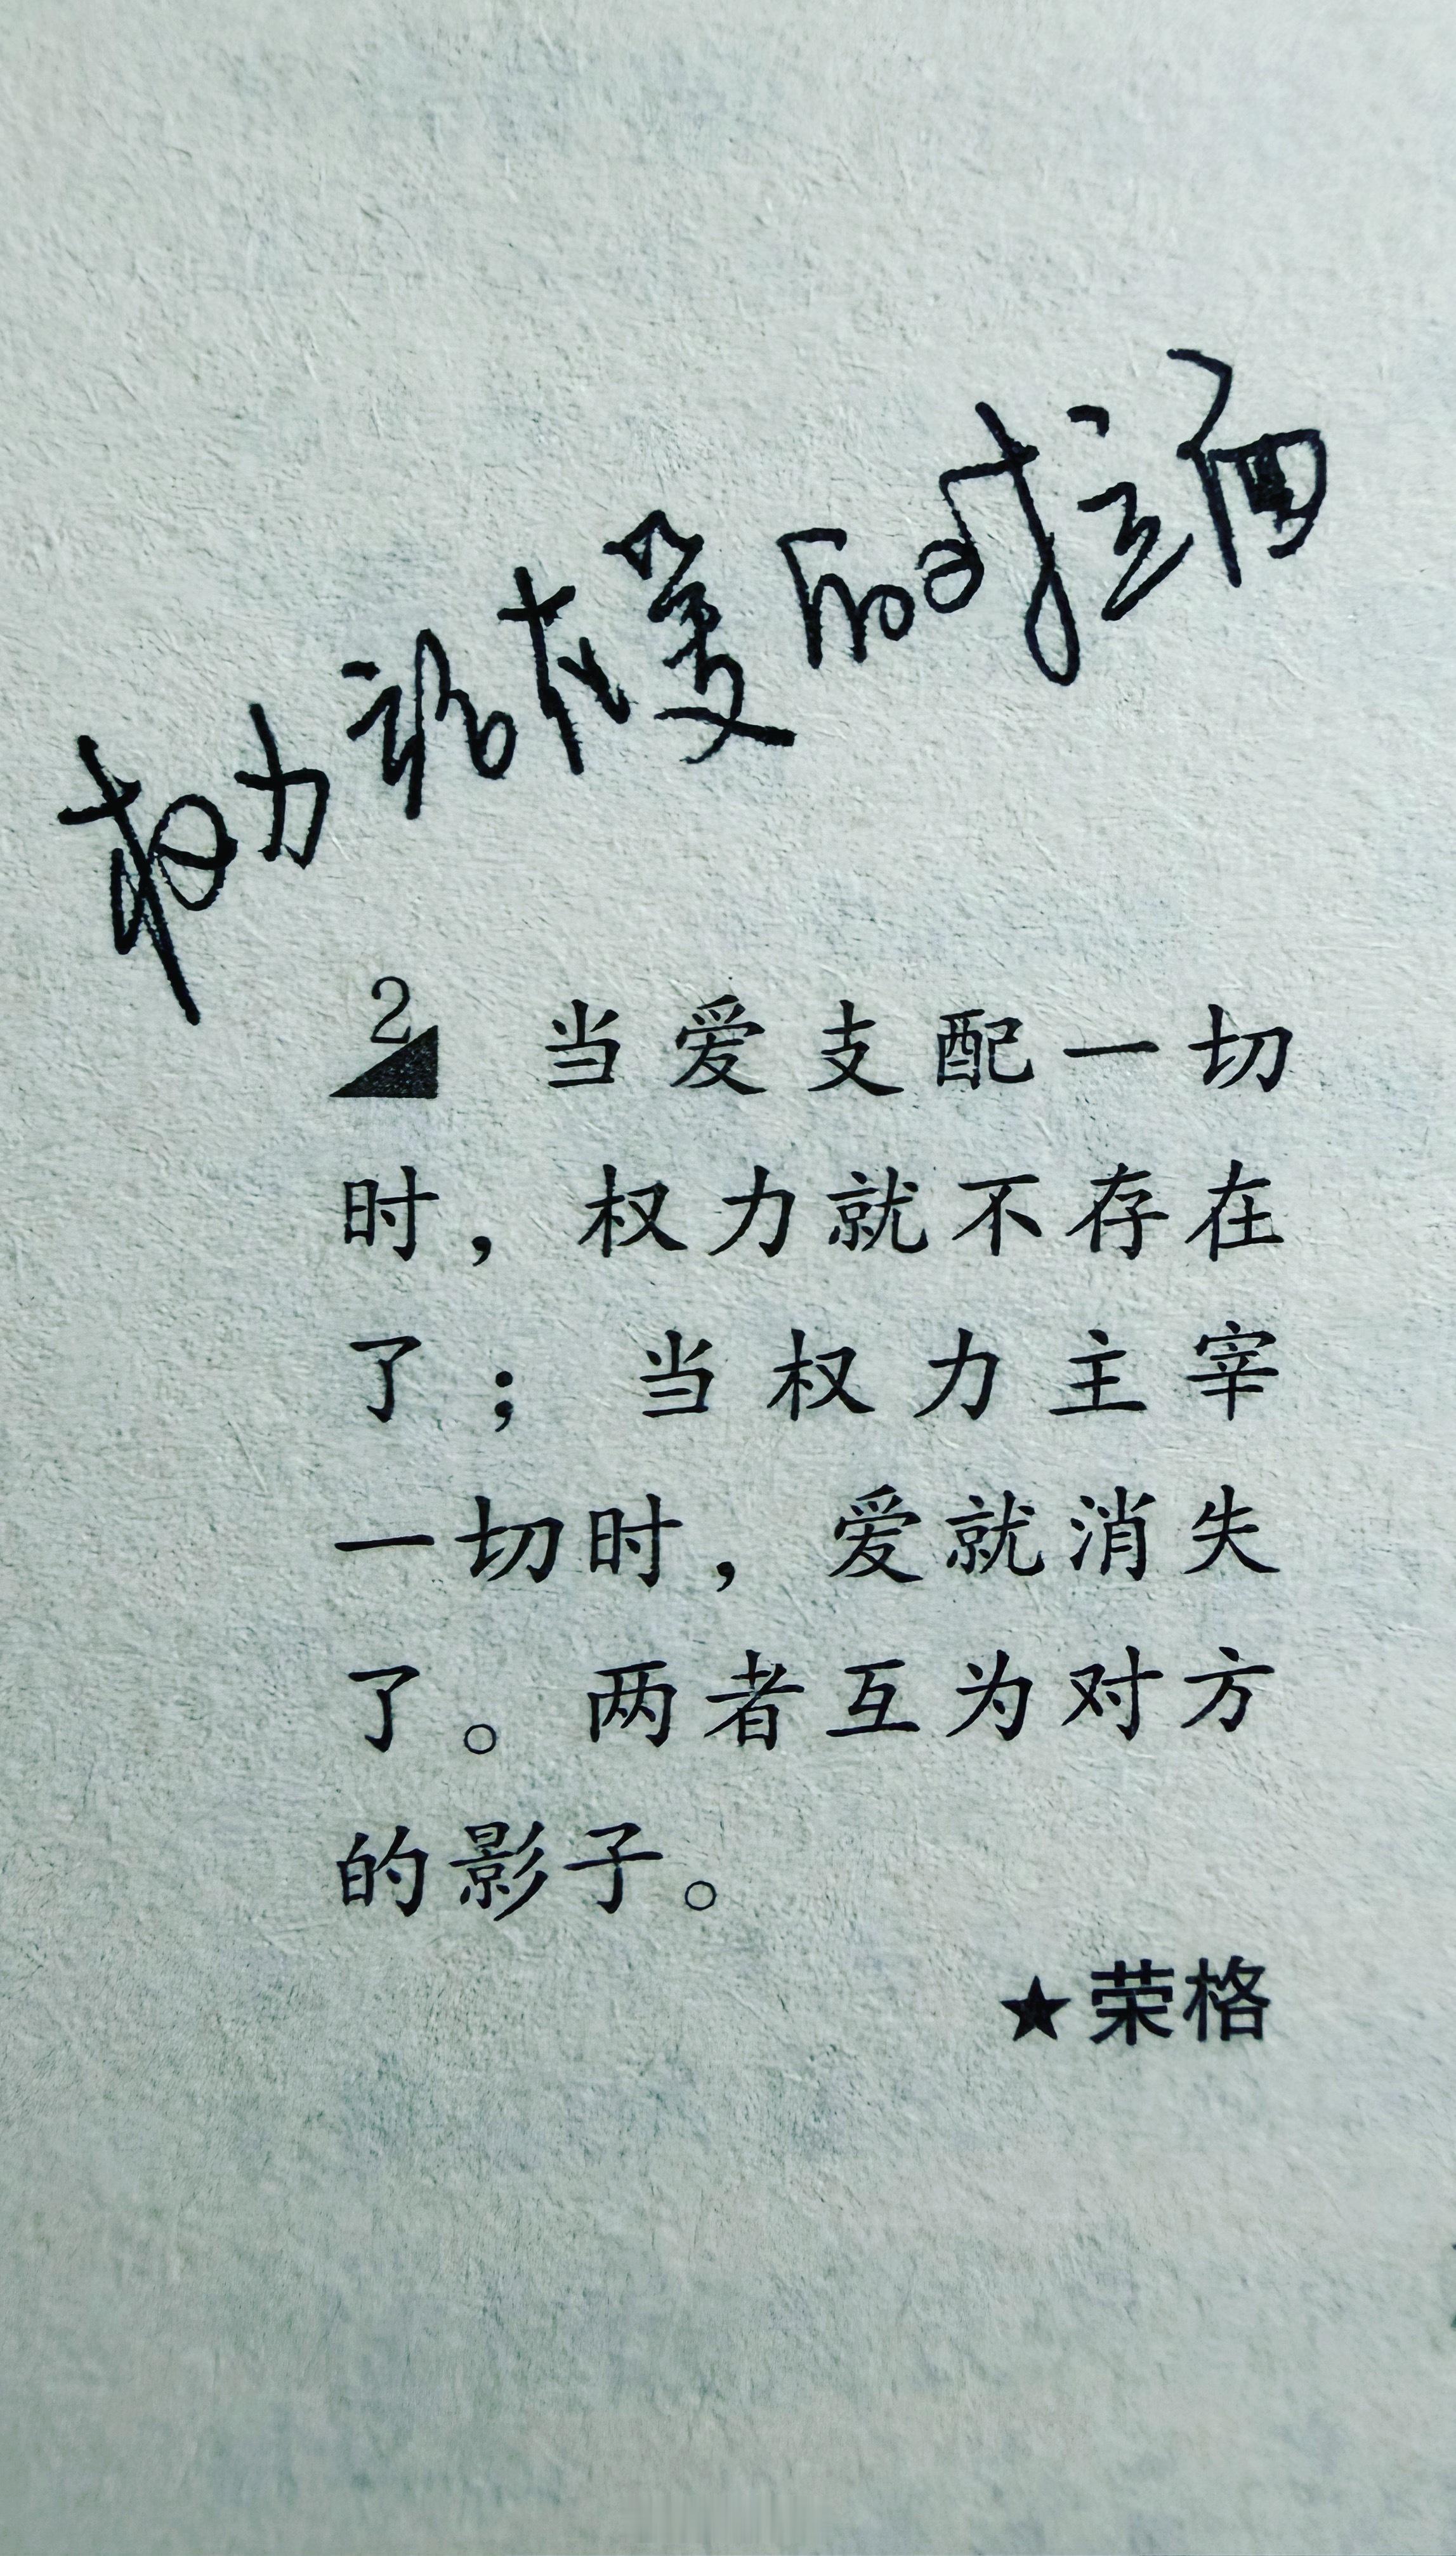 权力
2 当爱支配一切
时，权力就不存在
了；当权力主宰
一切时，爱就消失
了。两者互为对方
的影子。
★荣格